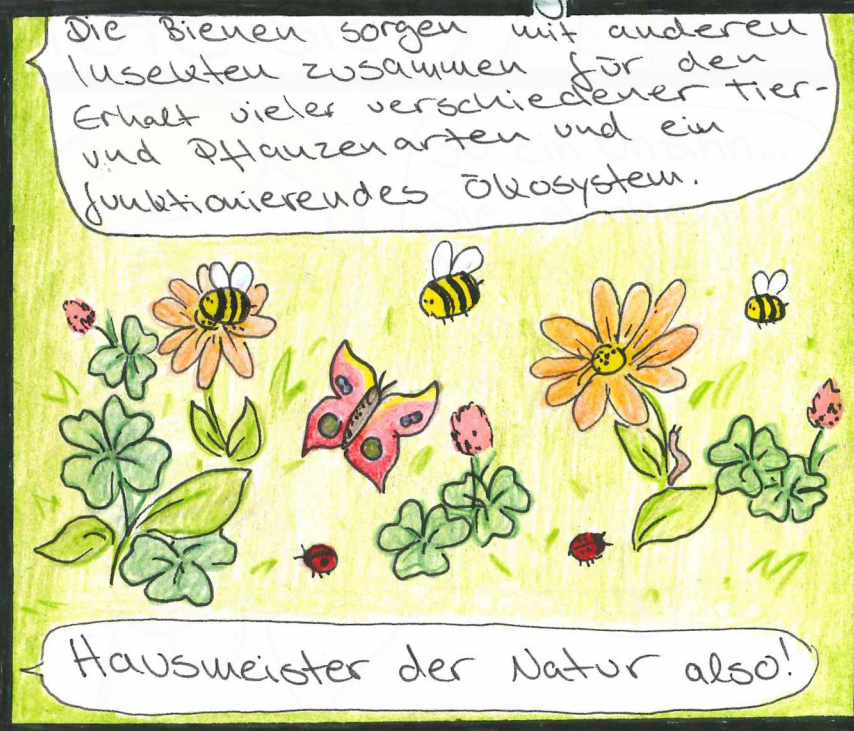 Die Bienen sorgen mit anderen
Insekten zusammen für den
Erhalt vieler verschiedener Tier-
und Pflanzenarten und ein
funktionierendes Ökosystem.
Hausmeister der Natur also!